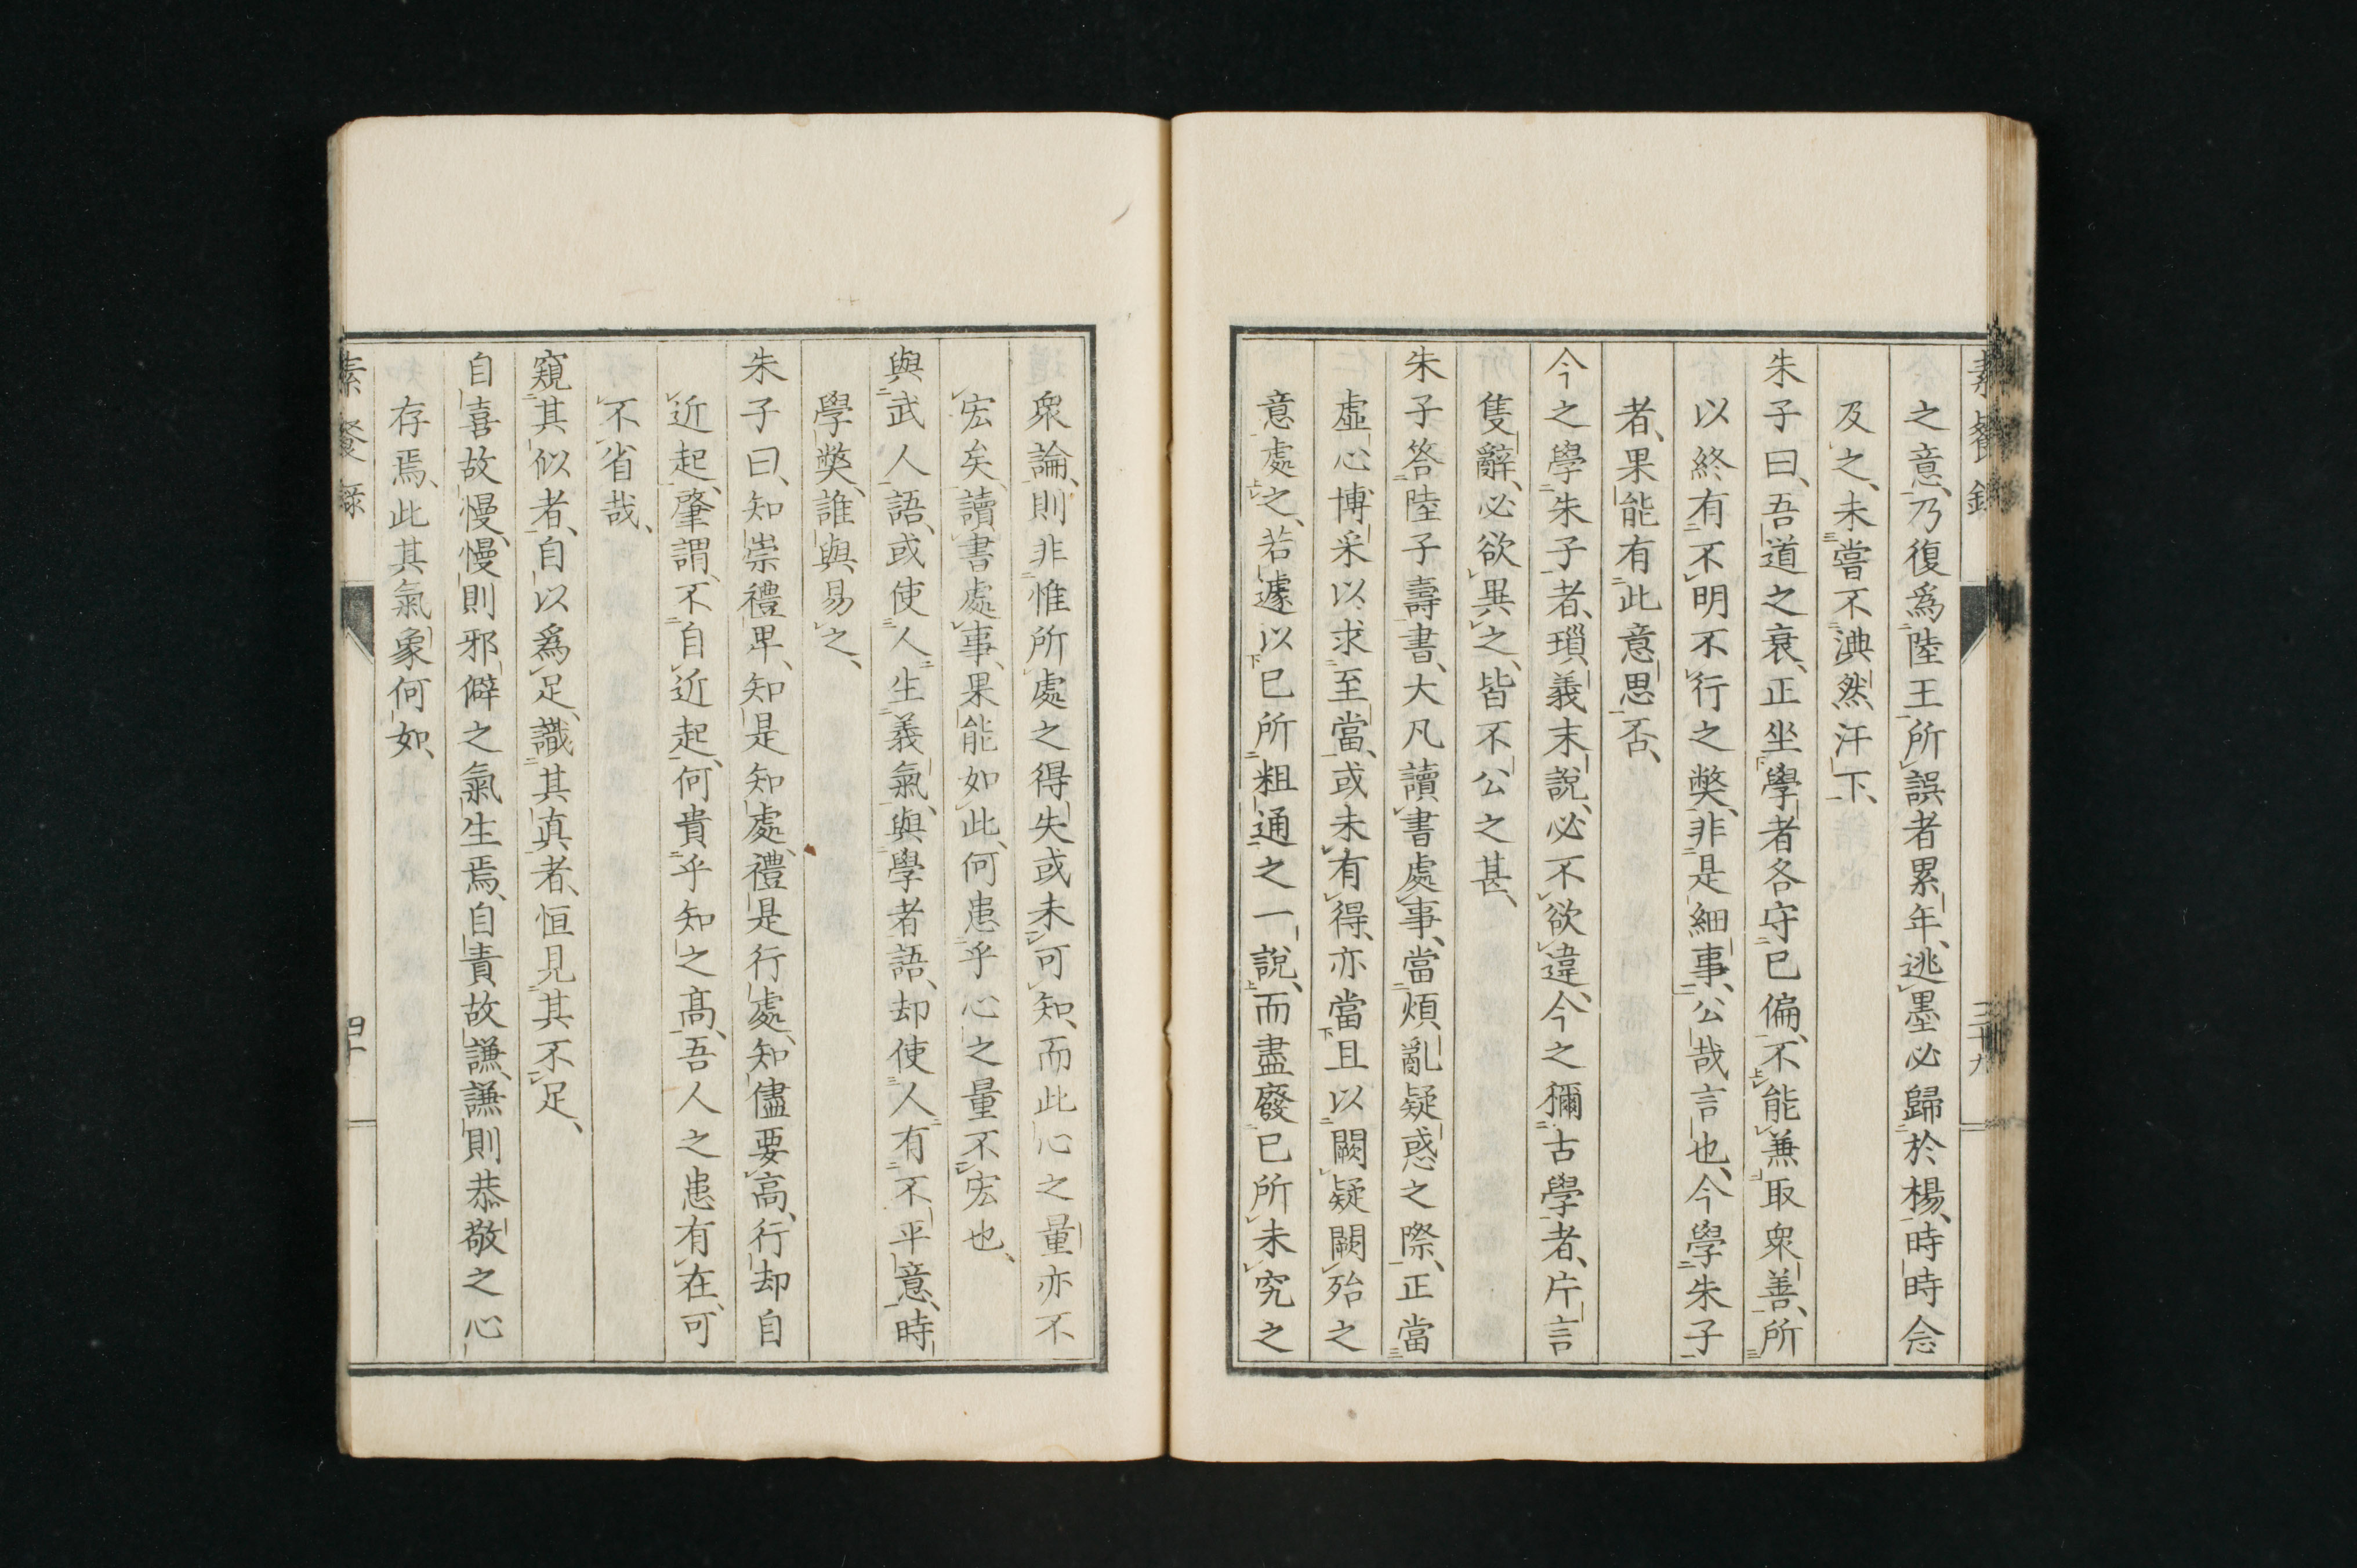 素餐錄
三十九
之意、乃復爲陸王所誤者累年、逃墨必歸於楊、時時念
及之、未嘗不淟然汗下、
朱子曰、吾道之衰、正坐學者各守已偏、不能兼取衆善、所
以終有不明不行之弊、非是細事、公哉言也、今學朱子
者、果能有此意思否、
今之學朱子者、瑣義末說、必不欲違、今之稱古學者、片言
隻辭、必欲異之、皆不公之甚、
朱子答陸子壽書、大凡讀書處事、當煩亂疑惑之際、正當
虛心博采以求至當、或未有得、亦當且以闕疑闕殆之
意處之、若遽以已所粗通之一說、而盡廢已所未究之
衆論、則非惟所處之得失或未可知、而此心之量亦不
宏矣、讀書處事、果能如此、何患乎心之量不宏也、
與武人語、或使人生義氣、與學者語、却使人有不平意、時
學弊、誰與易之、
朱子曰、知崇禮卑、知是知處、禮是行處、知儘要高、行却自
近起、肇謂、不自近起、何貴乎知之高、吾人之患有在、可
不省哉、
窺其似者、自以爲足、識其真者、恒見其不足、
自喜故慢、慢則邪僻之氣生焉、自責故謙、謙則恭敬之心
存焉、此其氣象何如、
素餐錄
四十